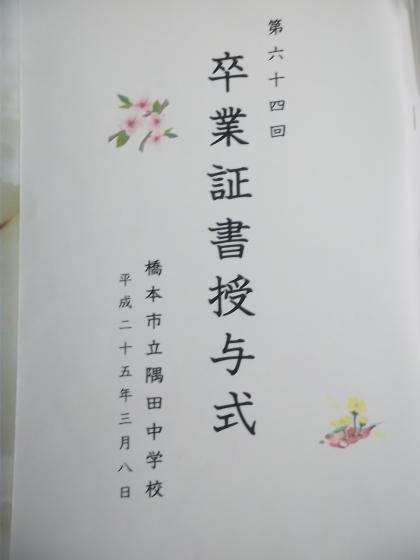 第六十四回
卒業証書授与式
橋本市立隅田中学校
平成二十五年三月八日